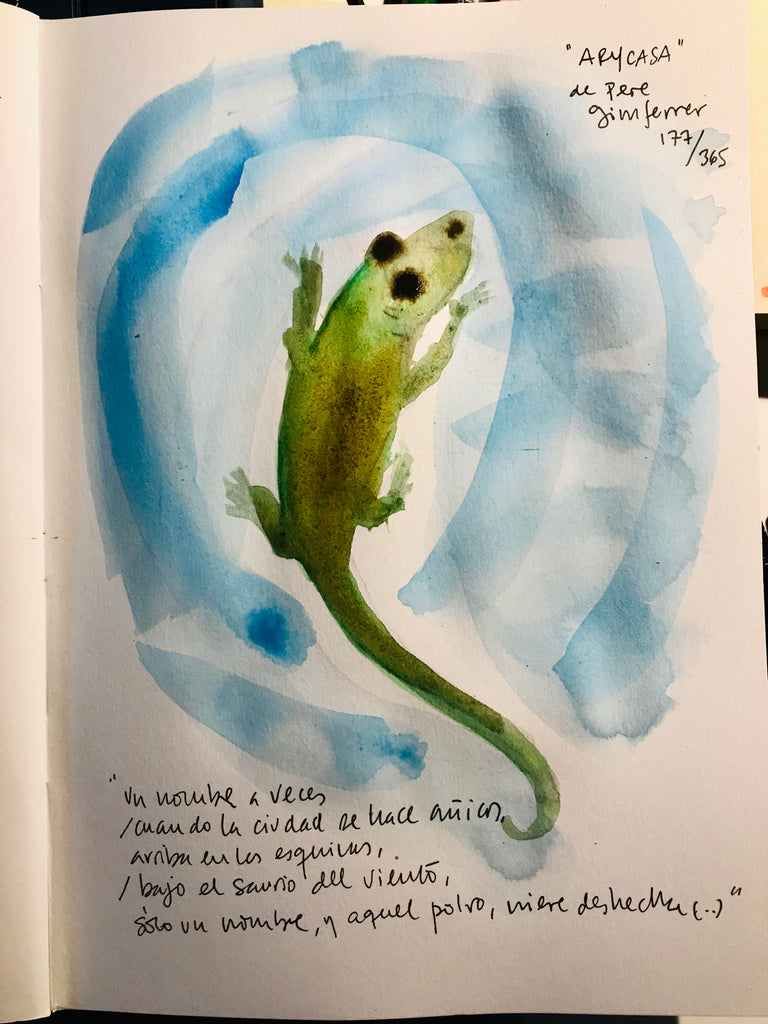 "ARYCASA"
de Pere
gimferrer
177/365
"un nombre a veces
/cuando la ciudad se hace añicos,
arriba en las esquinas,
/bajo el saurio del viento,
sólo un nombre, y aquel polvo, nieve deshecha (..)"